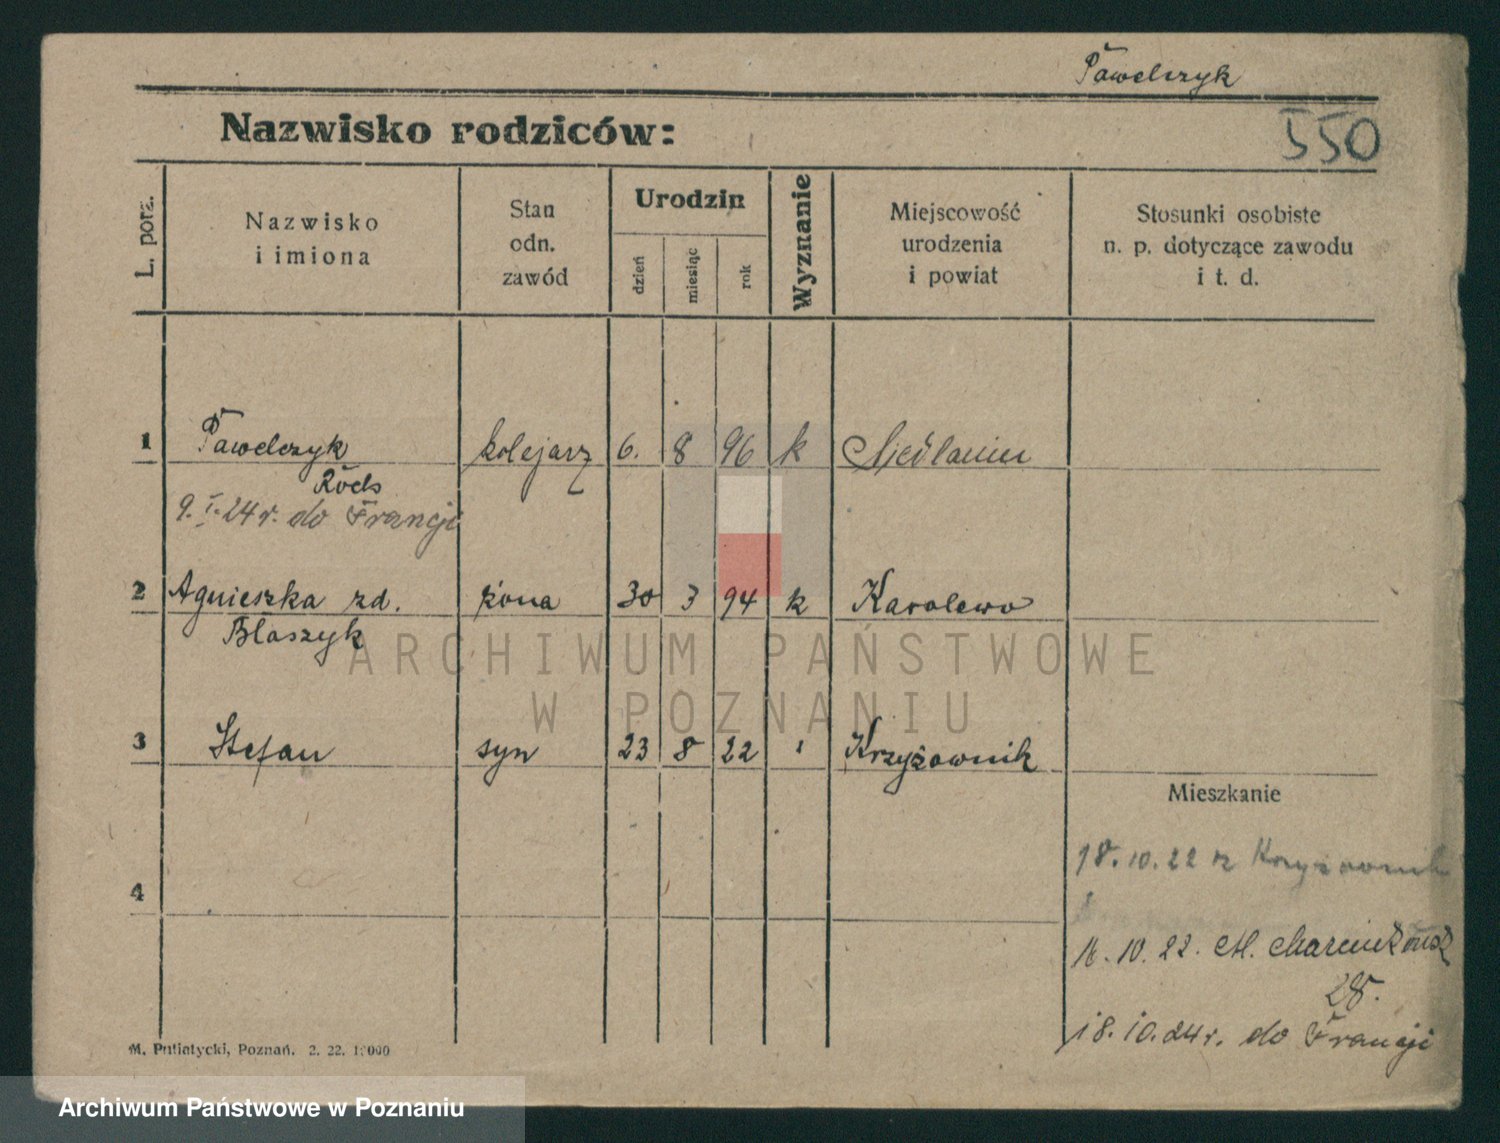 Pawelczyk
Nazwisko rodziców:
550
L. porz.
Nazwisko
i imiona
Stan
odn.
zawód
Urodzin
dzień
miesiąc
rok
Wyznanie
Miejscowość
urodzenia
i powiat
Stosunki osobiste
n. p. dotyczące zawodu
i t. d.
1 Pawelczyk kolejarz 6. 8 96 k
9. I. 24 r. do Francji
2 Agnieszka zd. żona 30 3 94 k Karolewo
Błaszyk
3 Stefan syn 23 8 22 Krzyżownik
Mieszkanie
4
18. 10. 22 z Krzyżownik
16. 10. 22. M.
28.
18. 10. 24 r. do Francji
M. Putiatycki, Poznań. 2. 22.
ARCHIWUM PAŃSTWOWE
W POZNANIU
Archiwum Państwowe w Poznaniu